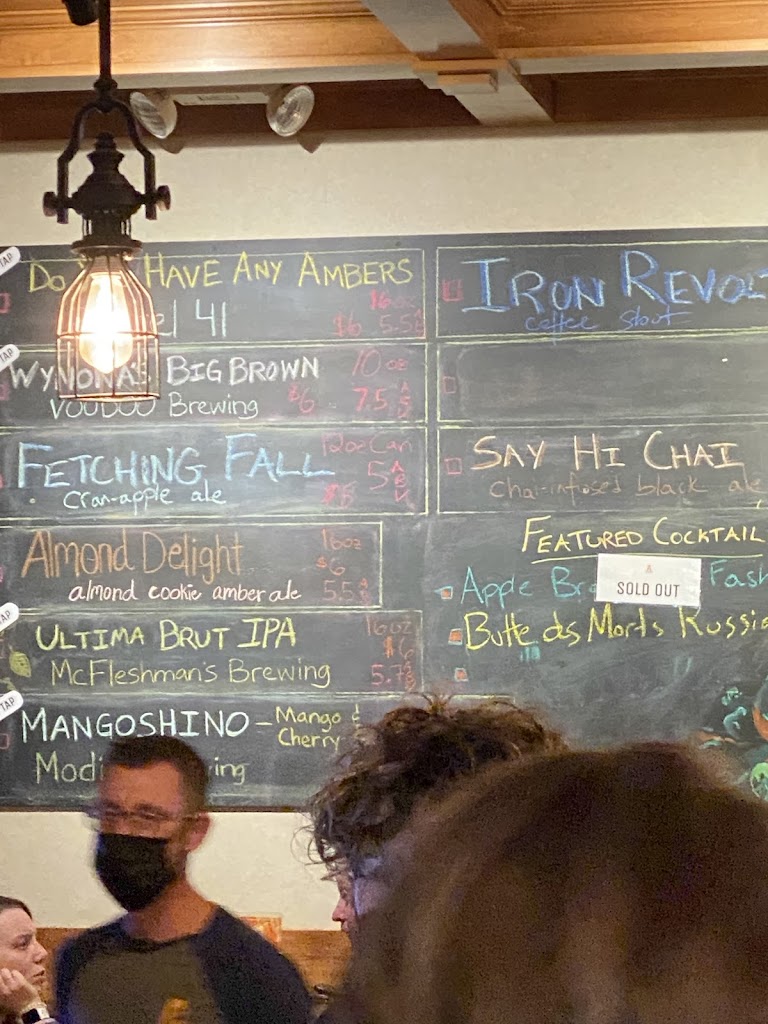 TAP
Do Have Any Ambers
el 41
16oz
$6 5.5
TAP
Wynona's Big Brown
VOODOO Brewing
10 oz
$6 7.5 ABV
Fetching Fall
cran-apple ale
12oz Can
5 ABV
Almond Delight
almond cookie amber ale
16oz
$6
5.5 ABV
TAP
Ultima Brut IPA
McFleshman's Brewing
16oz
$6
5.7
TAP
Mangoshino - Mango &
Cherry
Iron
coffee stout
Say Hi Chai
chai-infused black ale
Featured Cocktail
Apple
SOLD OUT
Butte des Morts